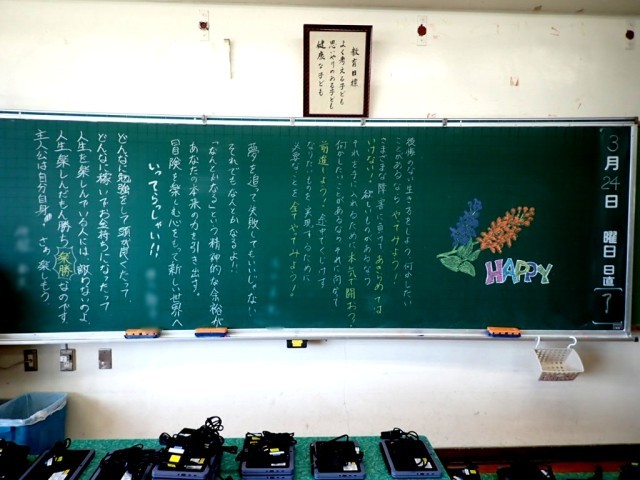 教育目標
よく考える子ども
思いやりのある子ども
健康な子ども
3月24日 曜日 日直(?)
HAPPY
後悔のない生き方をしよう。何かしたい
ことがあるなら、やってみよう!!
さまざまな障害に負けて、あきらめては
いけない!欲しいものがあるなら
それを手に入れるために本気で闘おう?
何かしたいことがあるなら、それに向かって
前進しよう!途中でくじけず
なりたいものを実現するために
必要なことを全てやってみよう?
夢を追って失敗してもいいじゃない
それでもなんとかなるよ!!
「なんとかなる」という精神的な余裕が
あなたの本来の力を引き出す。
冒険を楽しむ心をもって新しい世界へ
いってらっしゃい!!
どんなに勉強をして頭が良くたって、
どんなに稼いでお金持ちになったって
人生を楽しんでいる人には、敵わないのよ
人生楽しんだもん勝ち(楽勝)なのです。
主人公は自分自身。さぁ楽しもう。